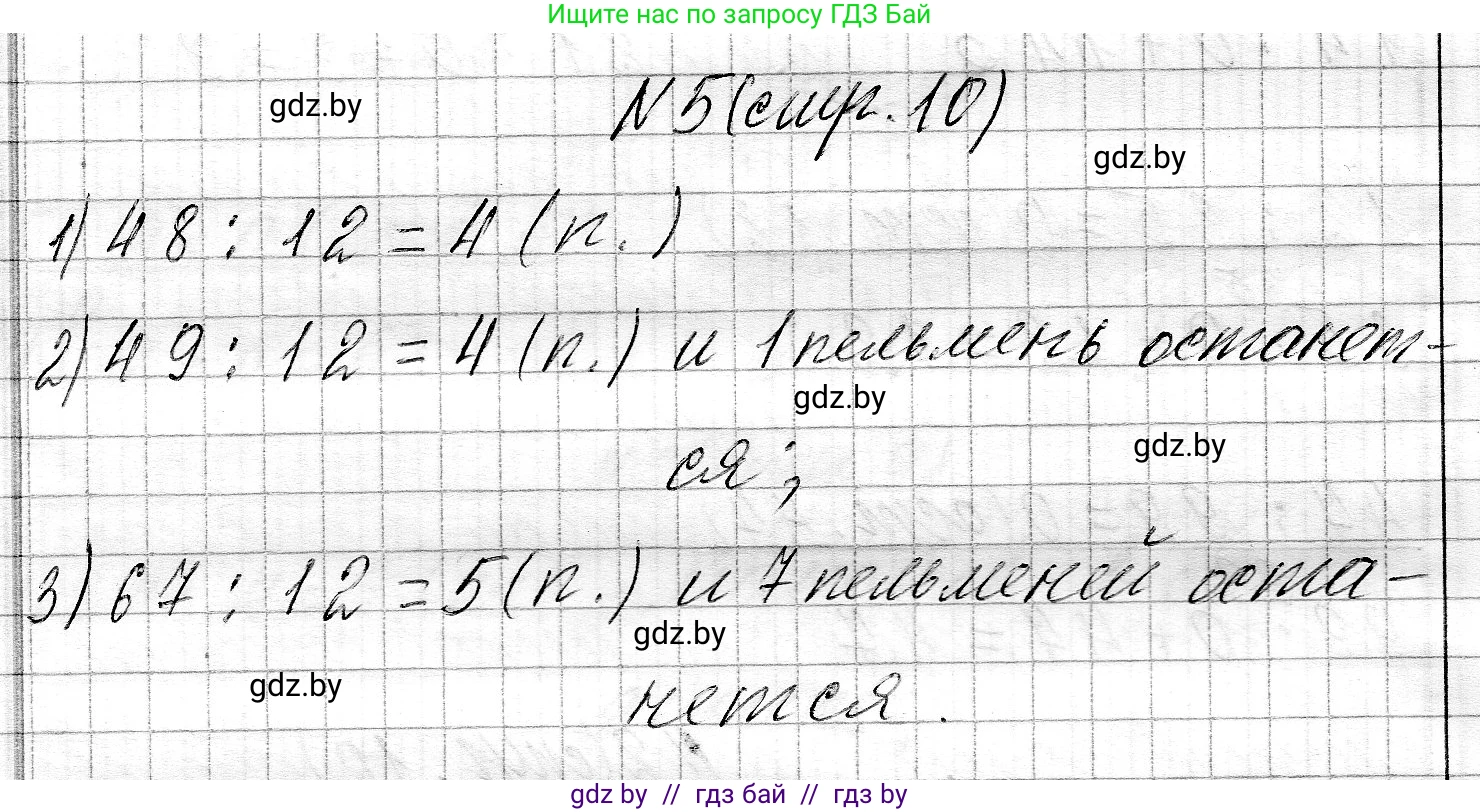 Ищите нас по запросу ГДЗ Бай
gdz.by
N 5 (стр. 10)
gdz.by
1) 48 : 12 = 4 (п.)
2) 49 : 12 = 4 (п.) и 1 пельмень останет-
gdz.by
ся;
gdz.by
3) 67 : 12 = 5 (п.) и 7 пельменей оста-
gdz.by
нется.
gdz.by
gdz by // гдз бай // гдз by